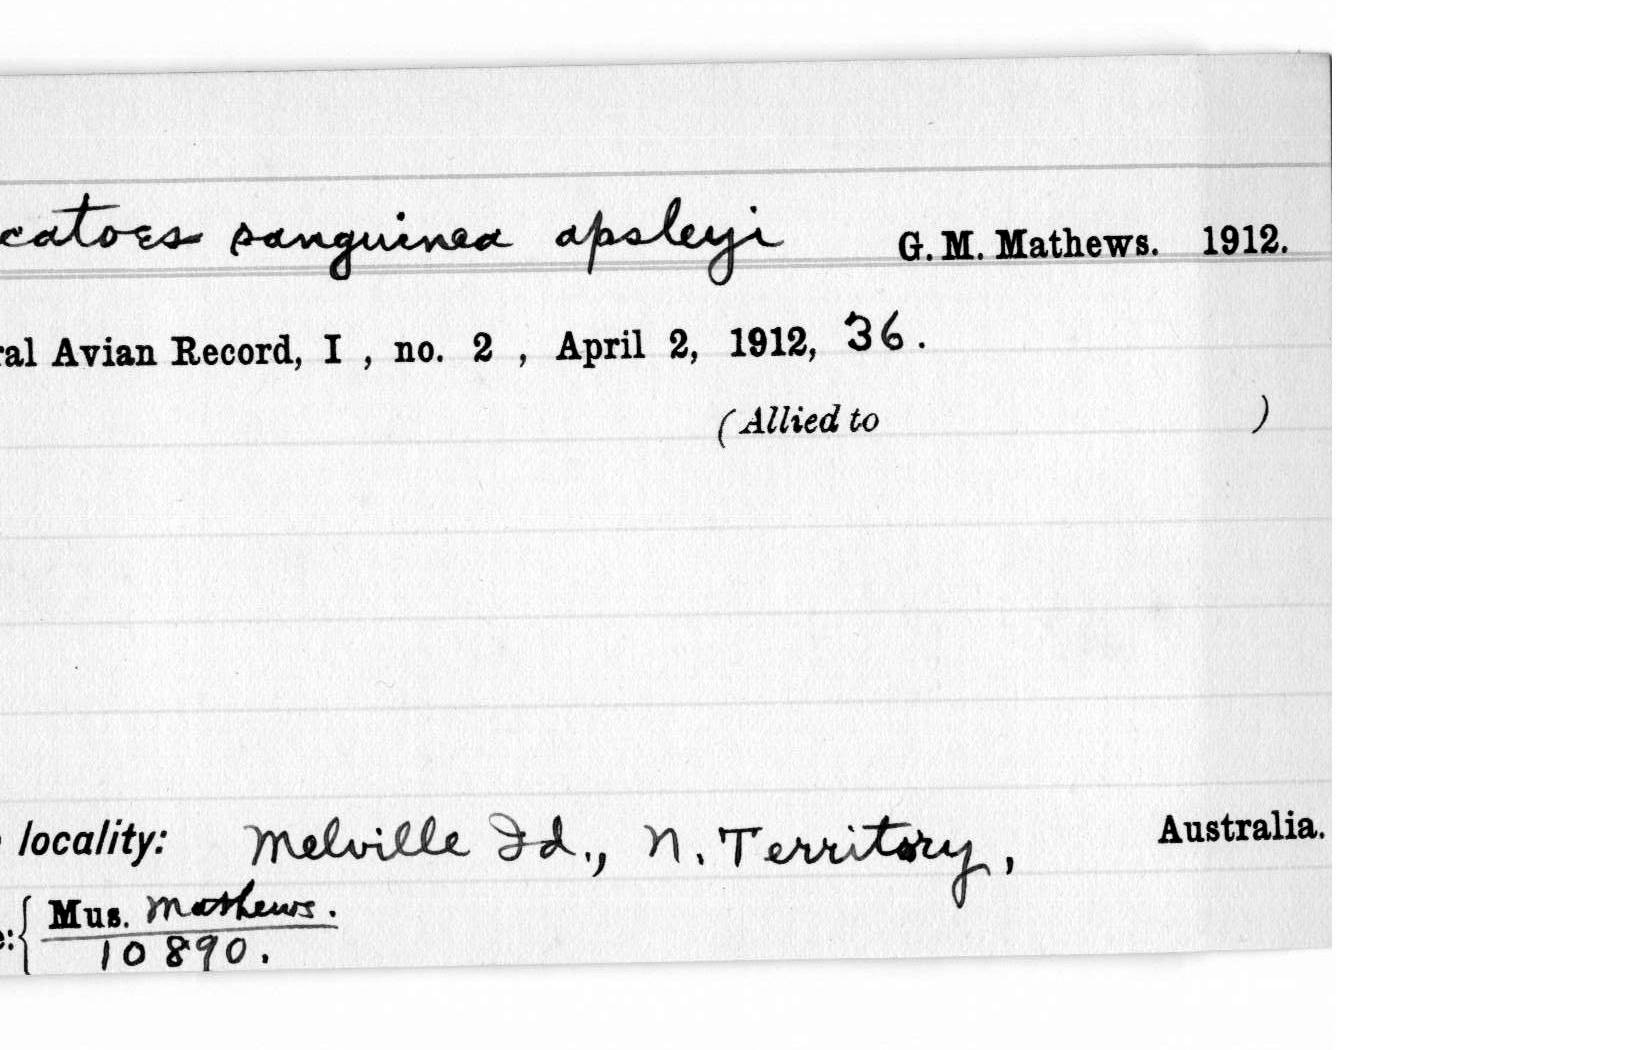 catoes sanguinea apsleyi G. M. Mathews. 1912.
ral Avian Record, I , no. 2 , April 2, 1912, 36.
(Allied to )
locality: Melville Id., N. Territory, Australia.
e:{ Mus. Mathews.
10890.